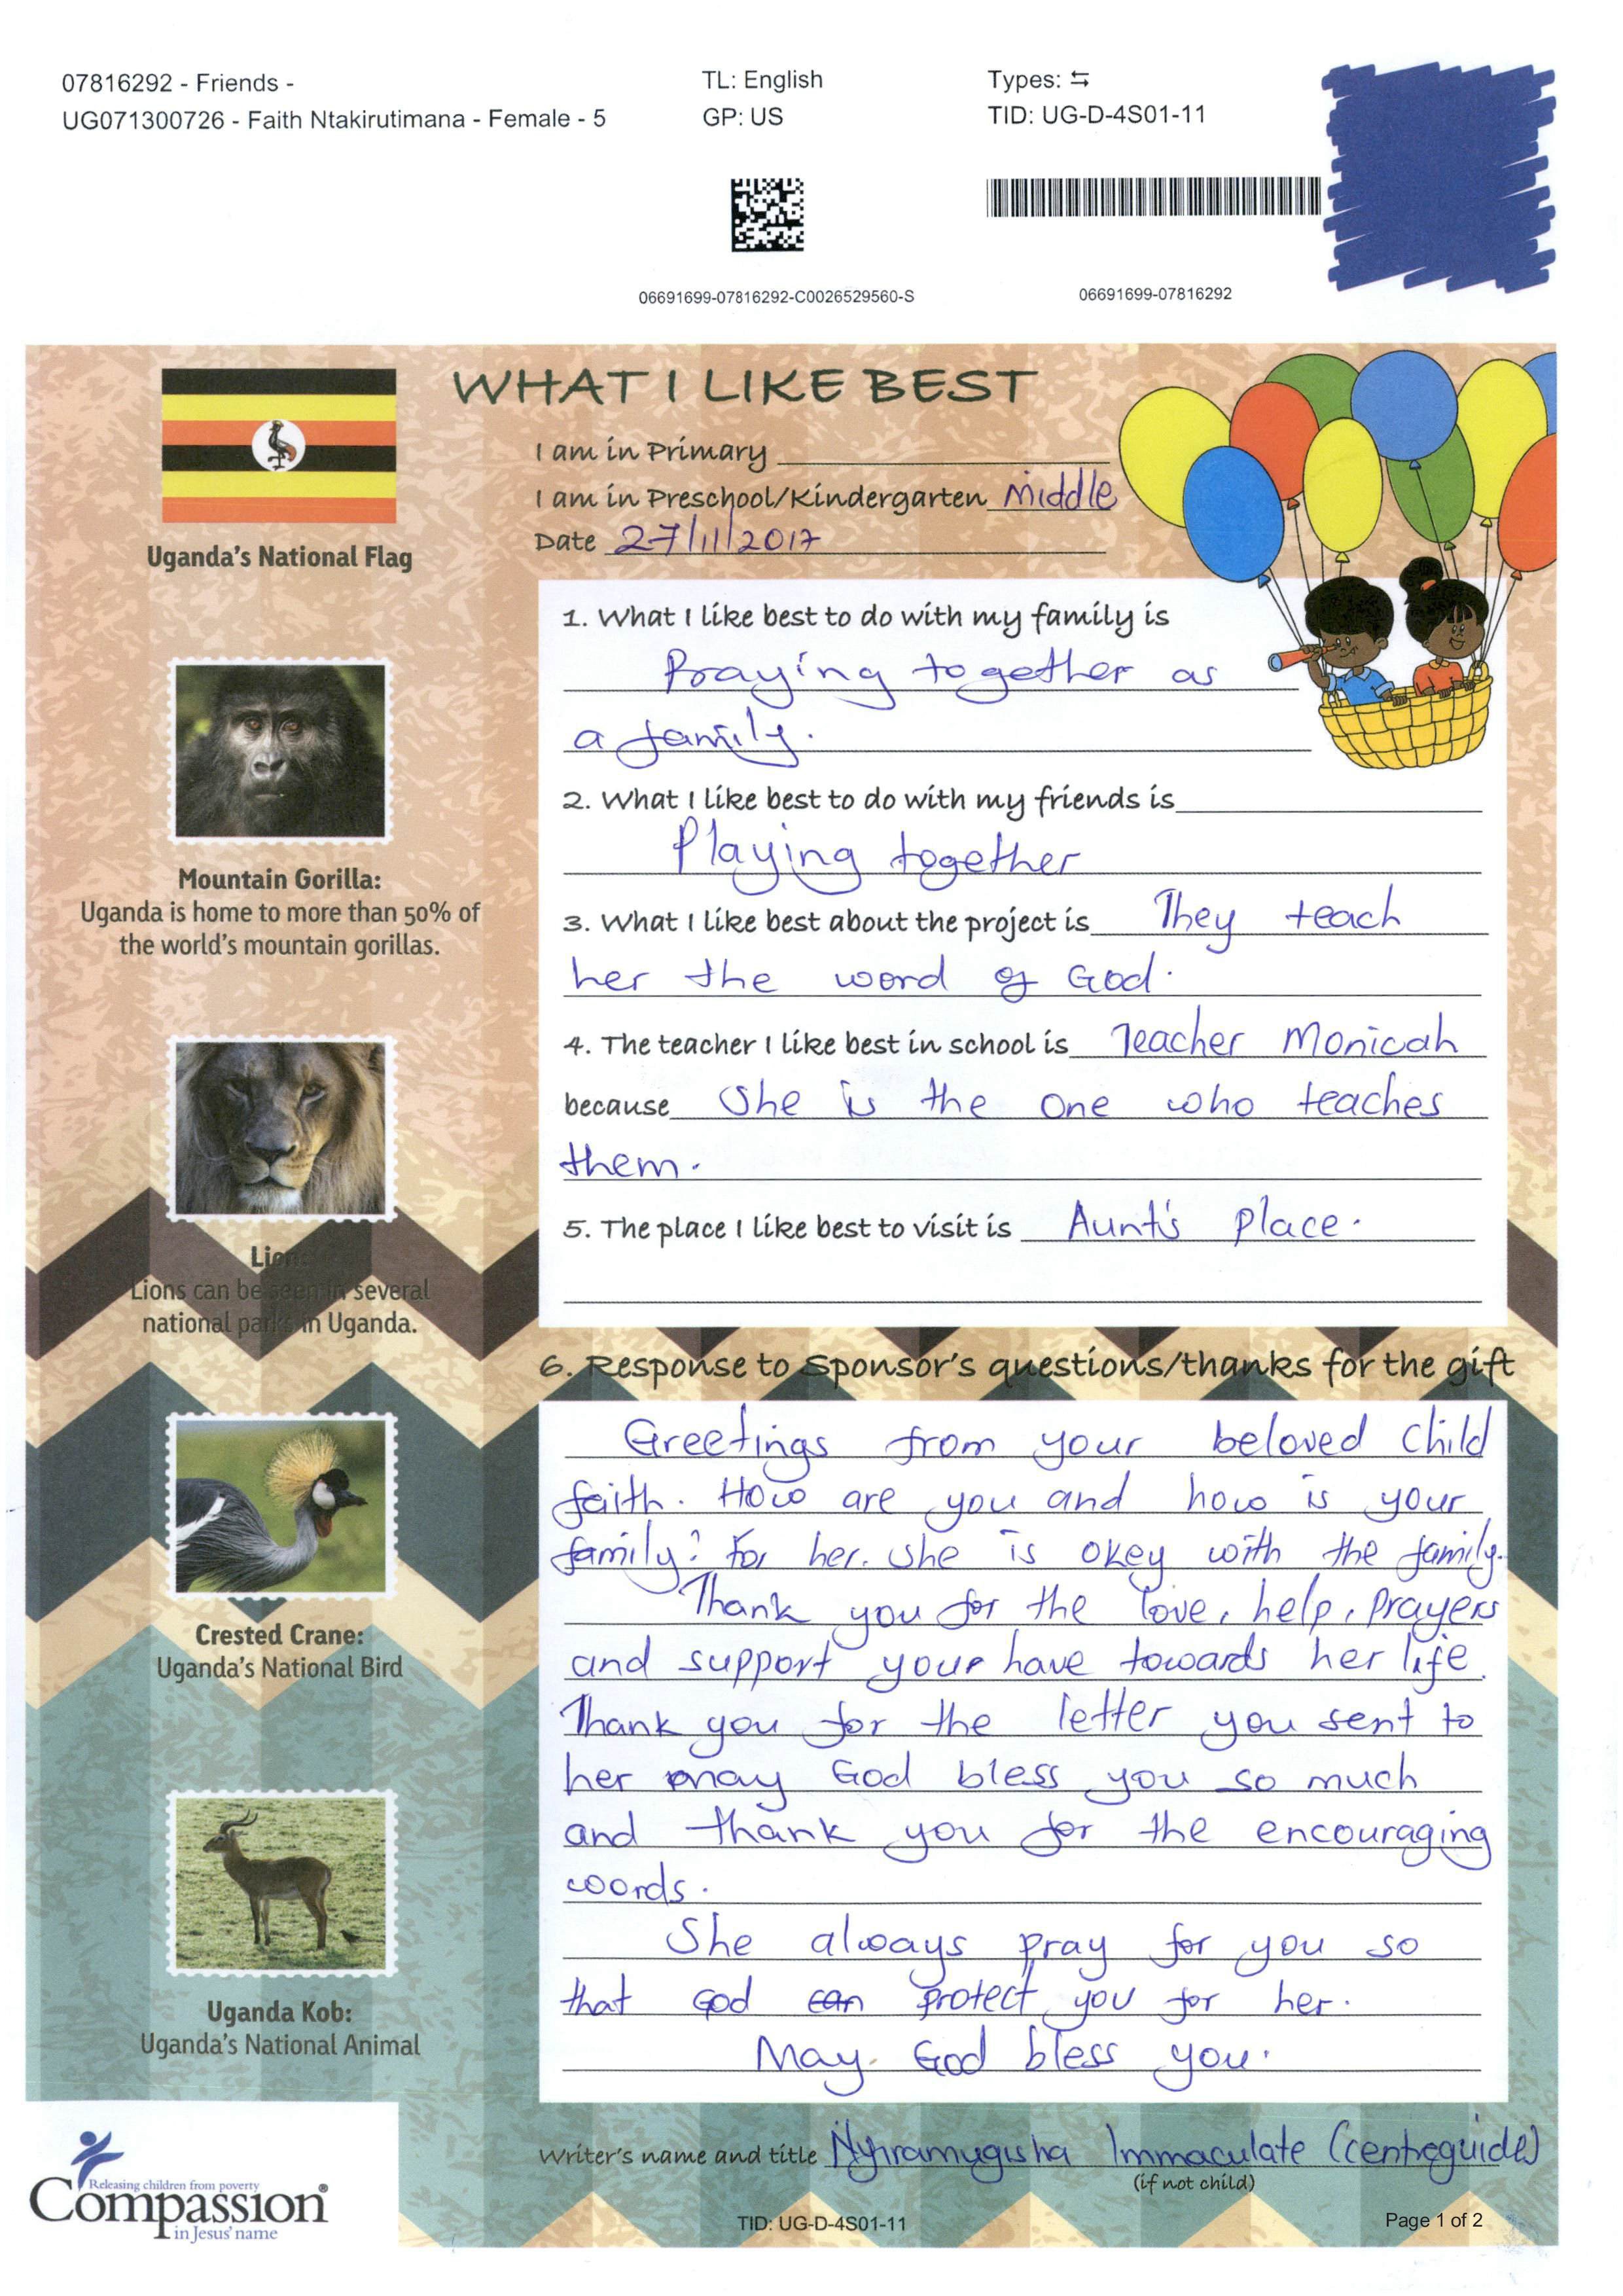 07816292 - Friends -
UG071300726 - Faith Ntakirutimana - Female - 5
TL: English
GP: US
Types: ⇆
TID: UG-D-4S01-11
06691699-07816292-C0026529560-S
06691699-07816292
WHAT I LIKE BEST
I am in Primary
I am in Preschool/Kindergarten Middle
Date 27/11/2017
Uganda's National Flag
Mountain Gorilla:
Uganda is home to more than 50% of
the world's mountain gorillas.
Lion:
Lions can be seen in several
national parks in Uganda.
Crested Crane:
Uganda's National Bird
Uganda Kob:
Uganda's National Animal
1. What I like best to do with my family is
Praying together as
a family.
2. What I like best to do with my friends is
Playing together
3. What I like best about the project is They teach
her the word of God.
4. The teacher I like best in school is Teacher Monicah
because She is the one who teaches
them.
5. The place I like best to visit is Aunt's place.
6. Response to Sponsor's questions/thanks for the gift
Greetings from your beloved child
faith. How are you and how is your
family? For her. She is okey with the family.
Thank you for the love, help, prayers
and support your have towards her life.
Thank you for the letter you sent to
her may God bless you so much
and thank you for the encouraging
words.
She always pray for you so
that God can protect you for her.
May God bless you.
Writer's name and title Nyiramugisha Immaculate (centreguide)
(if not child)
Releasing children from poverty
Compassion®
in Jesus' name
TID: UG-D-4S01-11
Page 1 of 2